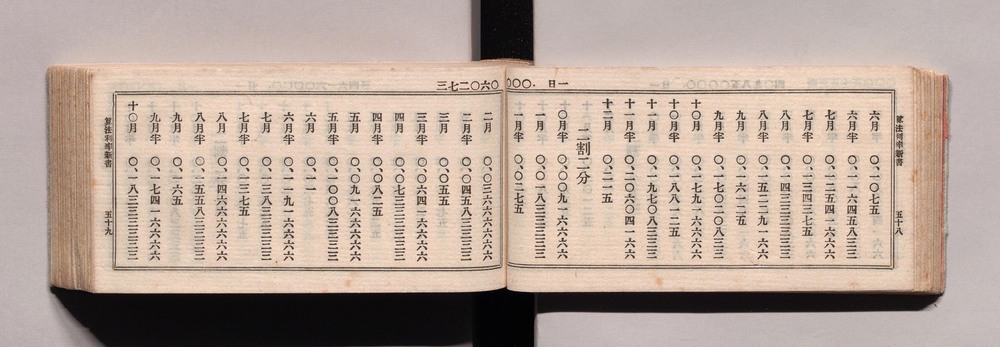 一日 .〇〇〇〇六〇二七三
算法利率新書 五十八
六月 〇、一〇七五
六月半 〇、一一六四五八三三
七月 〇、一二五四一六六六
七月半 〇、一三四三七五
八月 〇、一四三三三三三三
八月半 〇、一五二二九一六六
九月 〇、一六一二五
九月半 〇、一七〇二〇八三三
十〇月 〇、一七九一六六六六
十〇月半 〇、一八八一二五
十一月 〇、一九七〇八三三三
十一月半 〇、二〇六〇四一六六
十二月 〇、二一五
二割二分
〇月半 〇、〇〇九一六六六六
一月 〇、〇一八三三三三三
一月半 〇、〇二七五
二月 〇、〇三六六六六六六
二月半 〇、〇四五八三三三三
三月 〇、〇五五
三月半 〇、〇六四一六六六六
四月 〇、〇七三三三三三三
四月半 〇、〇八二五
五月 〇、〇九一六六六六六
五月半 〇、一〇〇八三三三三
六月 〇、一一
六月半 〇、一一九一六六六六
七月 〇、一二八三三三三三
七月半 〇、一三七五
八月 〇、一四六六六六六六
八月半 〇、一五五八三三三三
九月 〇、一六五
九月半 〇、一七四一六六六六
十〇月 〇、一八三三三三三三
算法利率新書 五十九